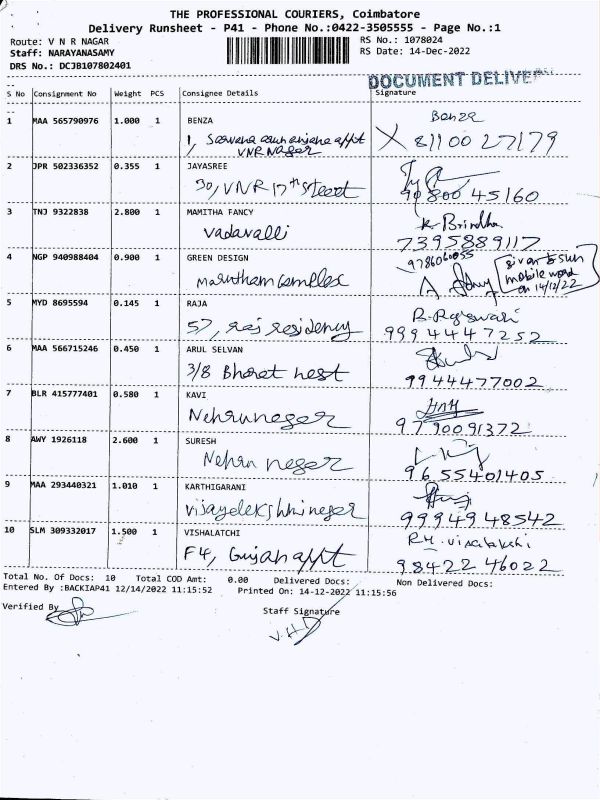 THE PROFESSIONAL COURIERS, Coimbatore
Delivery Runsheet - P41 - Phone No.:0422-3505555 - Page No.:1
Route: V N R NAGAR RS No.: 1078024
Staff: NARAYANASAMY RS Date: 14-Dec-2022
DRS No.: DCJB107802401
DOCUMENT DELIVE
S No Consignment No Weight PCS Consignee Details Signature
1 MAA 565790976 1.000 1 BENZA Benza
1, appt 81100 27179
VNR Nager
2 JPR 502336352 0.355 1 JAYASREE
30, VNR 17th street 90800 45160
3 TNJ 9322838 2.800 1 MAMITHA FANCY K. Brindha
Vadavalli 7395889117
4 NGP 940988404 0.900 1 GREEN DESIGN 9786060055 given to sun
Marutham Complex mobile
on 14/12/22
5 MYD 8695594 0.145 1 RAJA
57, raj residency 9994447252
6 MAA 566715246 0.450 1 ARUL SELVAN
3/8 Bharat nest 9944477002
7 BLR 415777401 0.580 1 KAVI
Nehrunager 9790091372
8 AWY 1926118 2.600 1 SURESH
Nehru neger 9655401405
9 MAA 293440321 1.010 1 KARTHIGARANI
9994948542
10 SLM 309332017 1.500 1 VISHALATCHI
F4, appt 98422 46022
Total No. Of Docs: 10 Total COD Amt: 0.00 Delivered Docs: Non Delivered Docs:
Entered By :BACKIAP41 12/14/2022 11:15:52 Printed On: 14-12-2022 11:15:56
Verified By Staff Signature